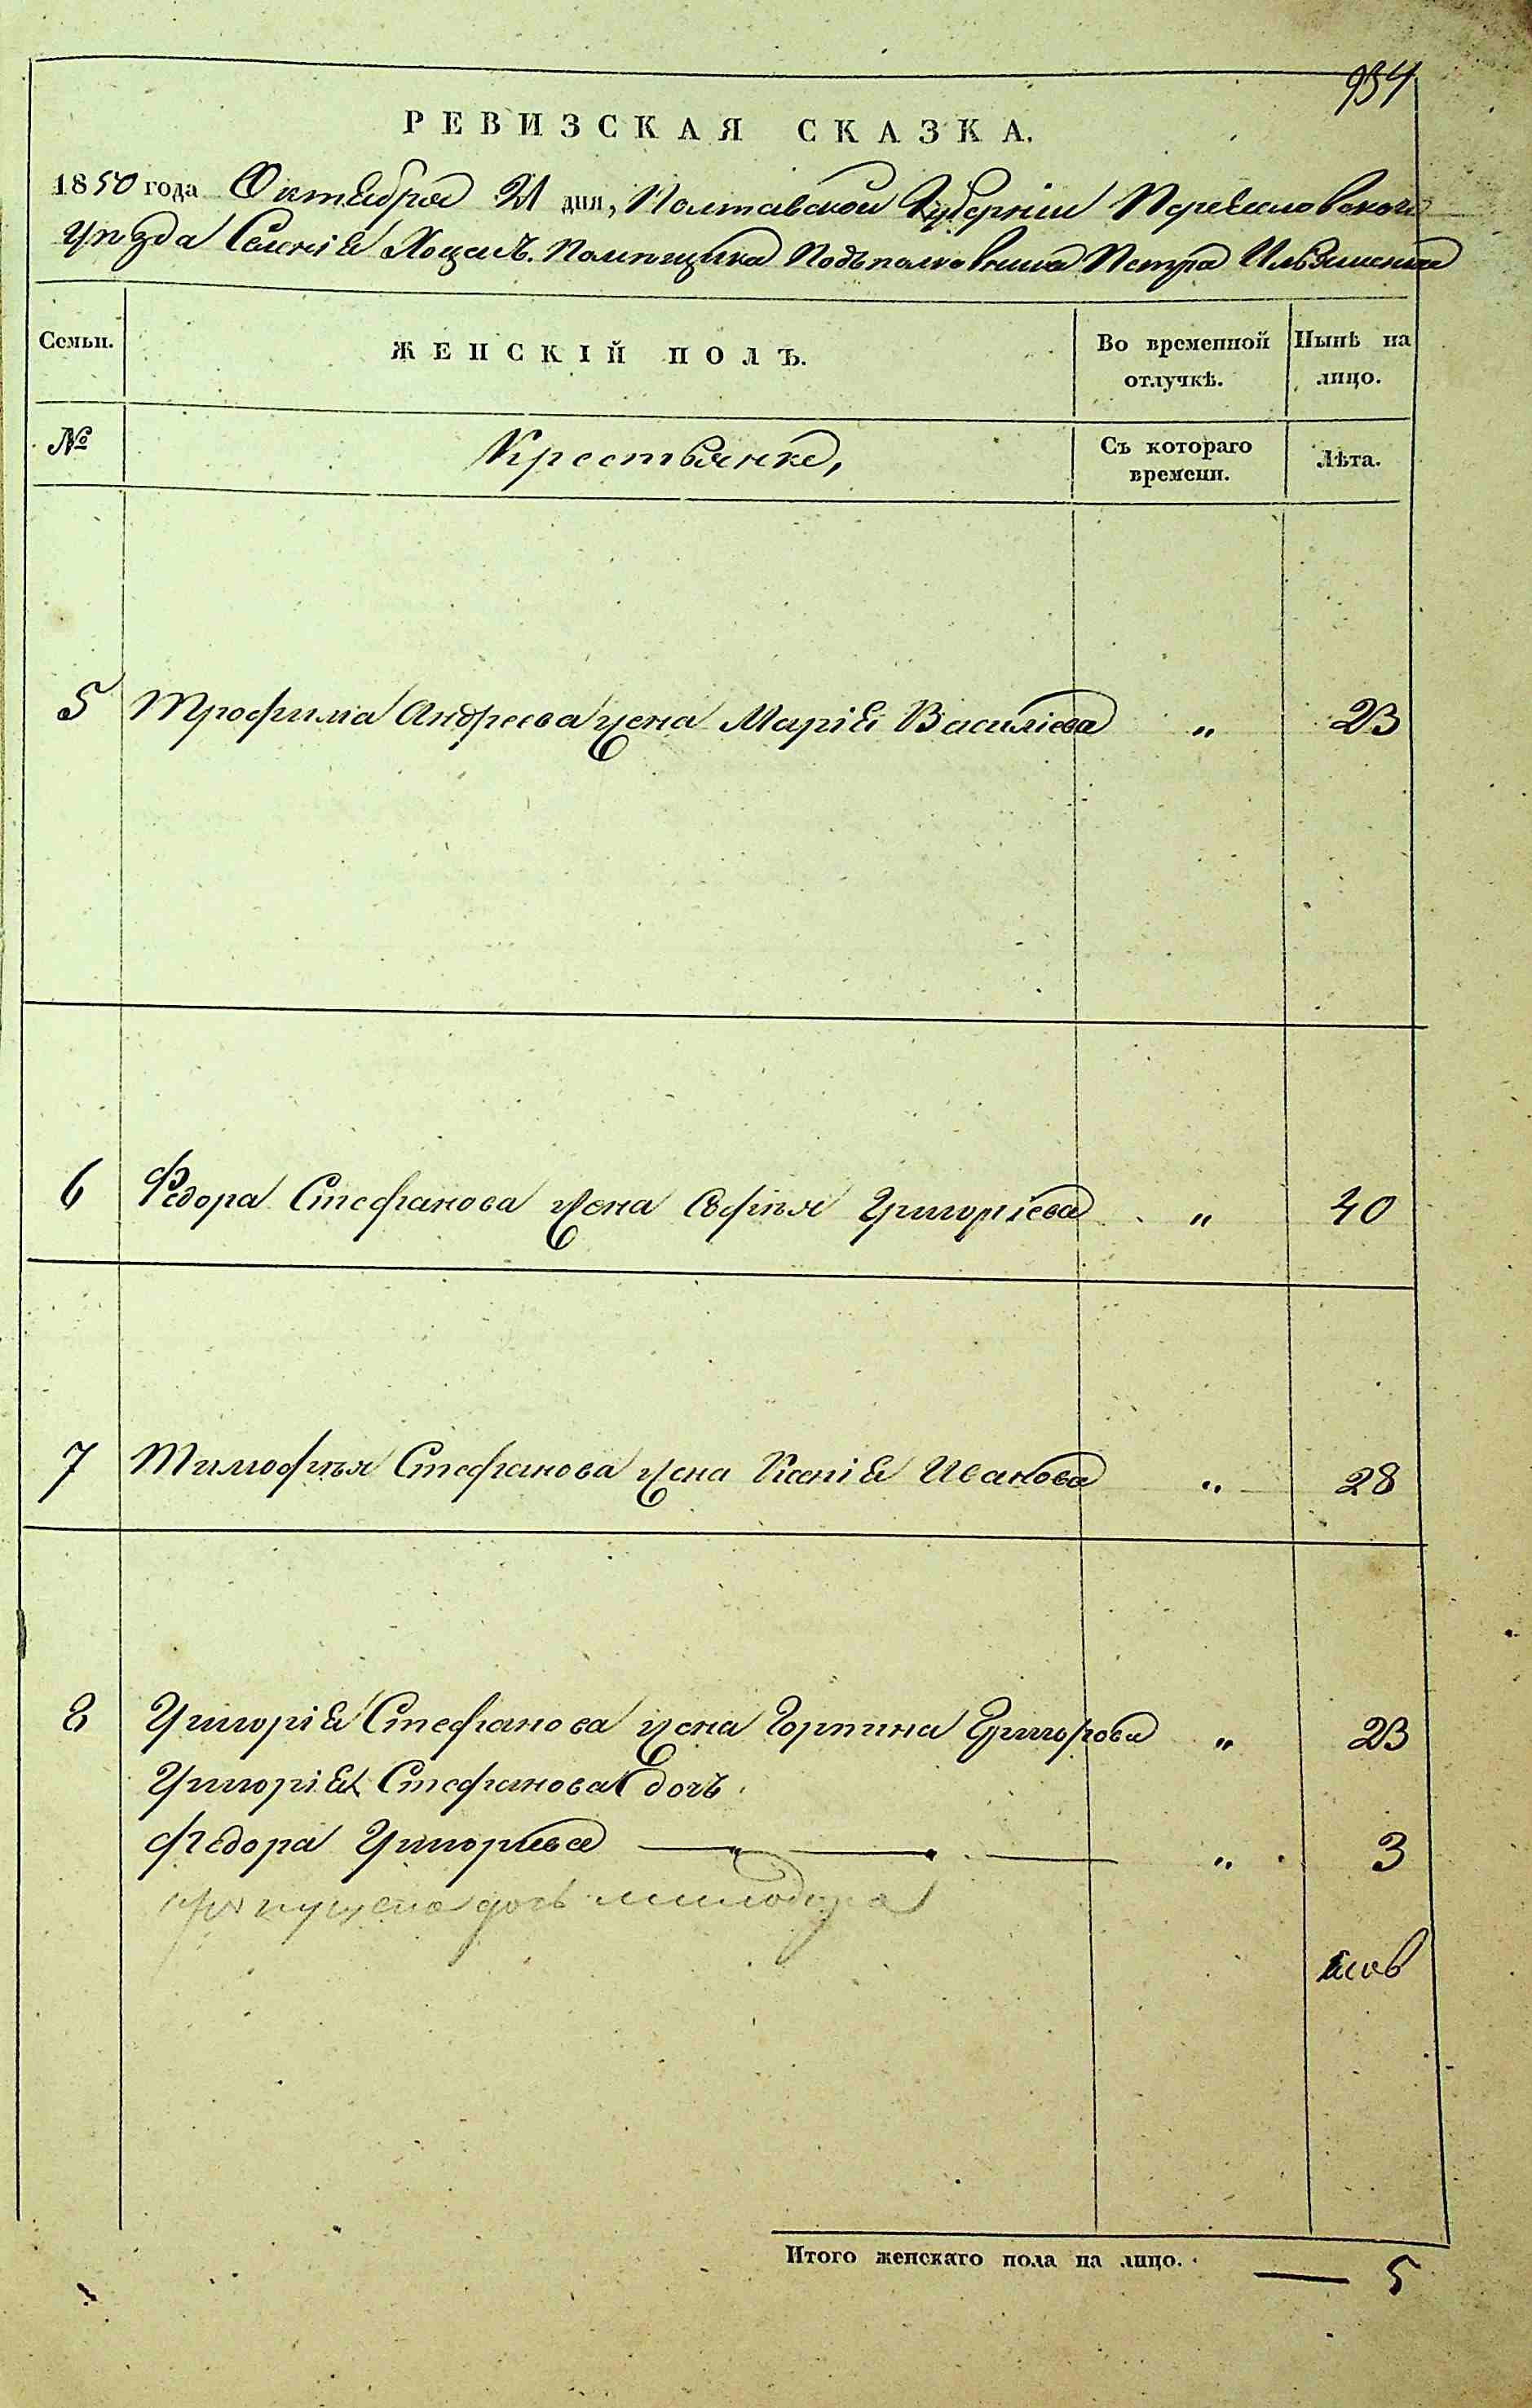 934
РЕВИЗСКАЯ СКАЗКА.
1850 года Октября 21 дня, Полтавской Губерніи Переясловского
уѣзда Селенія Хоцекъ. Помѣщика Подполковника Петра Ильяшенка
Семьи. ЖЕНСКІЙ ПОЛЪ. Во временной отлучкѣ. Нынѣ на лицо.
№ Крестьянке, Съ котораго времени. Лѣта.
5 Трофима Андреева жена Марія Василіева „ 23
6 Федора Стефанова жена Софія Григоріева „ 40
7 Тимофѣя Стефанова жена Ксенія Иванова „ 28
8 Григорія Стефанова жена Горпина Григорова „ 23
Григорія Стефанова дочь
Федора Григориева „ 3
пропущена дочь
Итого женскаго пола на лицо. — 5